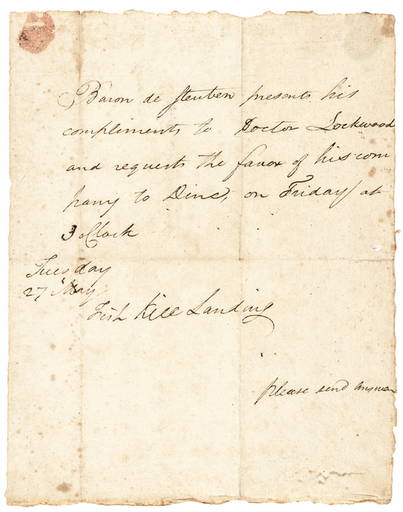 Baron de Steuben presents his
compliments to Doctor Lockwood
and requests the favor of his com
pany to Dine, on Friday at
3 oClock
Tuesday
27th May
Fish Kill Landing
please send answer